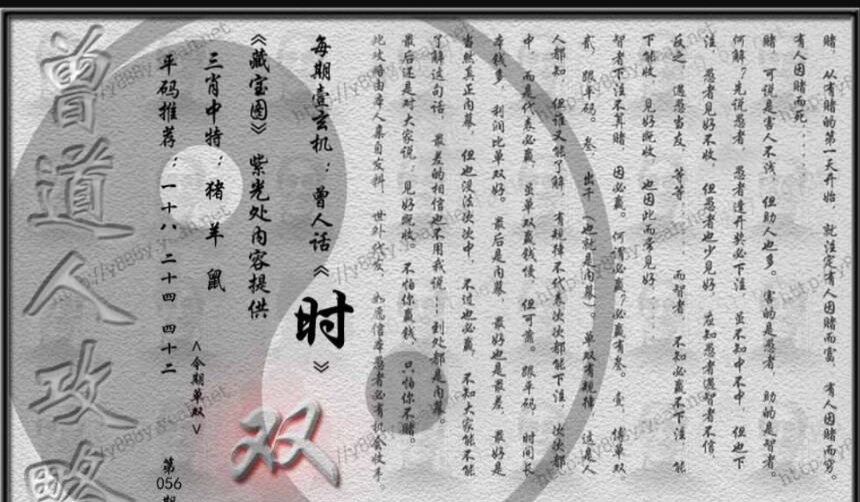 赌，从有赌的第一天开始，就注定有人因赌而富，有人因赌而穷。
有人因赌而死……
赌，可说是害人不浅，但助人也多。害的是愚者，助的是智者。
何解？先说愚者，愚者逢开奖必下注，虽不知中不中，但也下
注，愚者见好不收，但愚者也少见好，应知愚者遇智者不信，
反之，遇愚当友，等等，而智者，不知必赢不下注，能
下能收，见好既收，也因此而常见好……
智者下注不算赌，因必赢。何谓必赢？必赢有叁。壹，博单双。
贰，跟平码。叁，出千（也就是内幕）。单双有规律，这是人
人都知，但谁又能了解，有规律不代表次次都能下注，次次都
中，而是代表必赢，虽单双赢钱慢，但可靠。跟平码，时间长
本钱多，利润比单双好。最后是内幕，最好也是最差，最好是
当然真正内幕，但也没法次次中，不过也必赢，不知大家能不能
了解这句话，最差的相信也不用我说……到处都是内幕。
最后还是对大家说：见好既收。不怕你赢钱，只怕你不赌。
每期壹玄机：曾人话《时》
《藏宝图》紫光处内容提供
三肖中特：猪 羊 鼠
平码推荐：一十八 二十四 四十二
＜今期单双＞
双
第056期
曾道人攻略